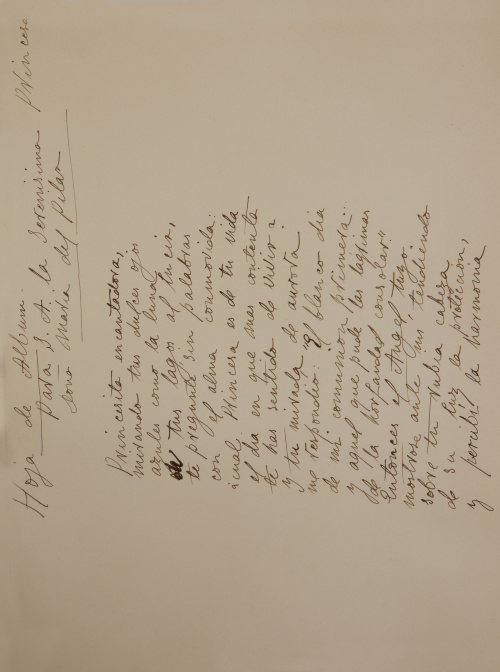 Hoja de Album.
Para S. A. la Serenisima Princesa
dona Maria del Pilar
Princesita encantadora,
mirando tus dulces ojos
azules como la luna
tus lagos al lucia,
te pregunté sin palabras
con el alma conmovida:
icual, Princesa es de tu vida
el dia en que mas contenta
te has sentido de vivir?
y tu mirada de aurora
me respondio: el blanco dia
de mi comunion primera
y aquel que pude las lagrimas
de la horfandad consolar."
Entonces el Angel tuyo
mostrose ante mi, tendiendo
sobre tu rubia cabeza
de su luz la proteccion,
y percibi la harmonia